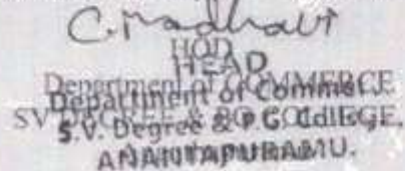 C. Madhavi
HOD
HEAD
Department of COMMERCE
Department of Commerce
SV DEGREE & PG COLLEGE
S.V. Degree & P.G. College,
ANANTAPURAMU.